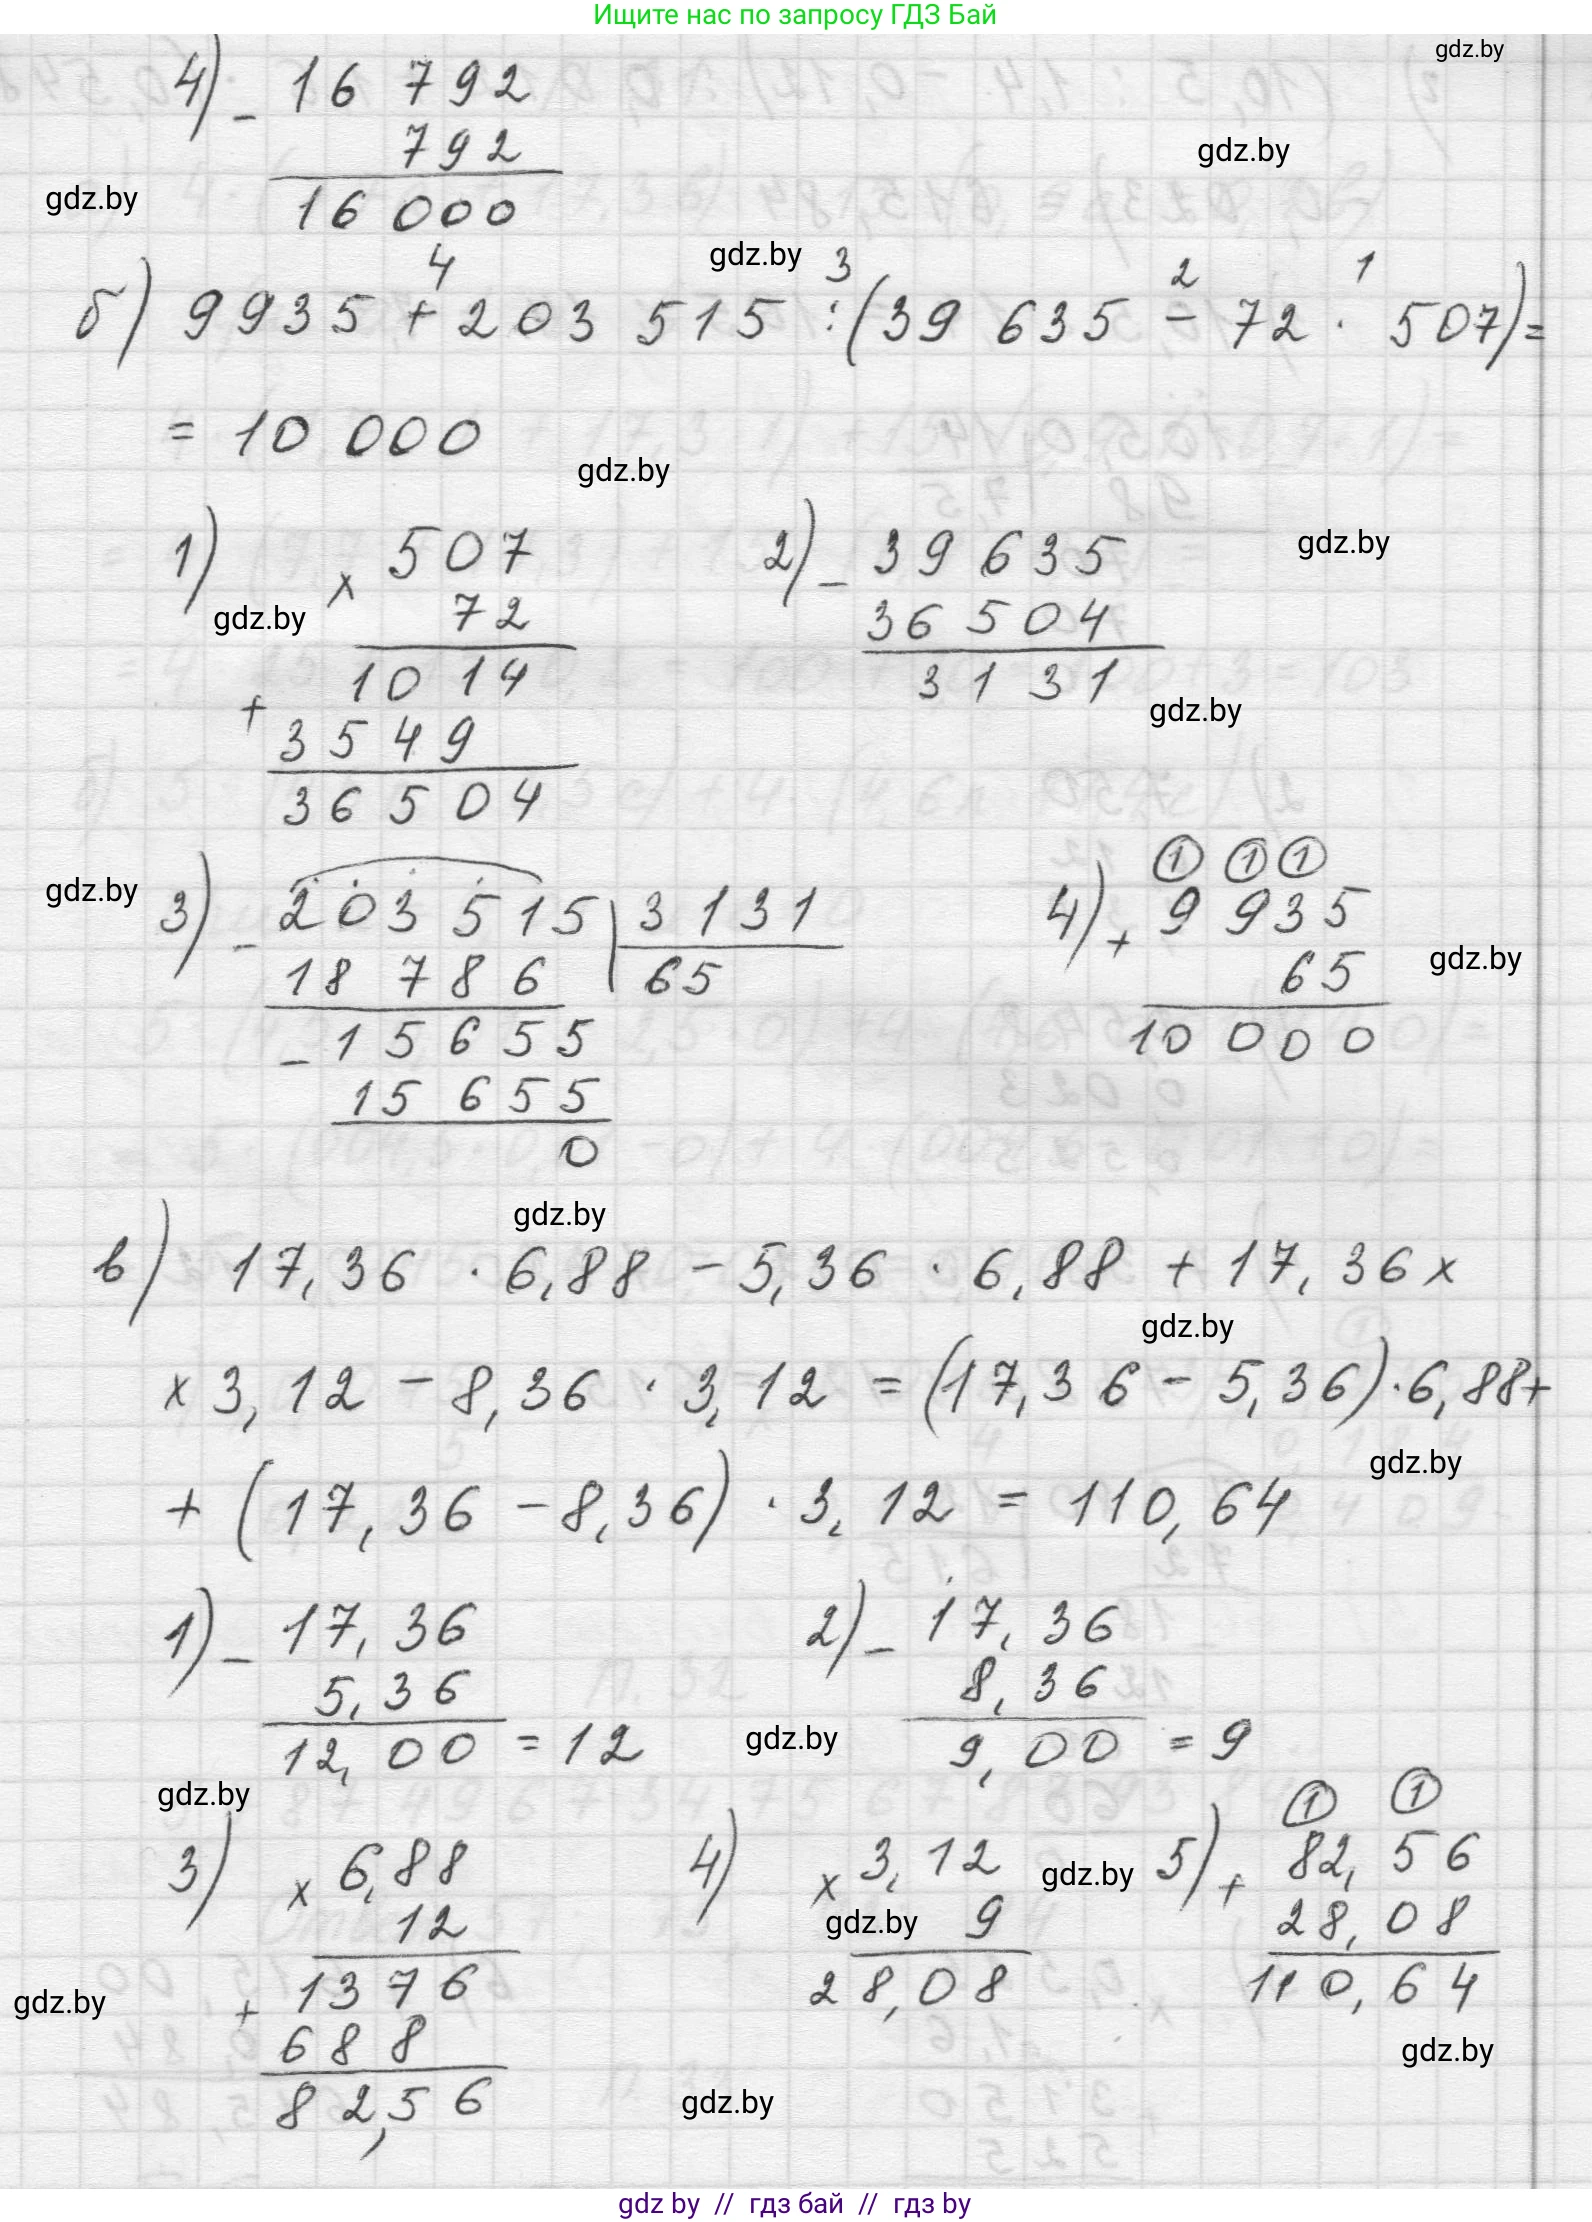 Ищите нас по запросу ГДЗ Бай
gdz.by
4) - 16 792
792
16 000
gdz.by
gdz.by
gdz.by
4 3 2 1
б) 9935 + 203 515 : (39 635 - 72 · 507) =
= 10 000
gdz.by
1) × 507
72
1014
+ 3549
36504
gdz.by
2) - 39635
36504
3131
gdz.by
gdz.by
3) - 203515 | 3131
18786 65
- 15655
15655
0
gdz.by
1 1 1
4) + 9935
65
10 000
gdz.by
gdz.by
в) 17,36 · 6,88 - 5,36 · 6,88 + 17,36 ×
gdz.by
× 3,12 - 8,36 · 3,12 = (17,36 - 5,36) · 6,88 +
gdz.by
+ (17,36 - 8,36) · 3,12 = 110,64
1) - 17,36
5,36
12,00 = 12
2) - 17,36
8,36
9,00 = 9
gdz.by
gdz.by
3) × 6,88
12
1376
+ 688
82,56
gdz.by
4) × 3,12
9
28,08
gdz.by
gdz.by
1 1
5) + 82,56
28,08
110,64
gdz.by
gdz.by
gdz by // гдз бай // гдз by